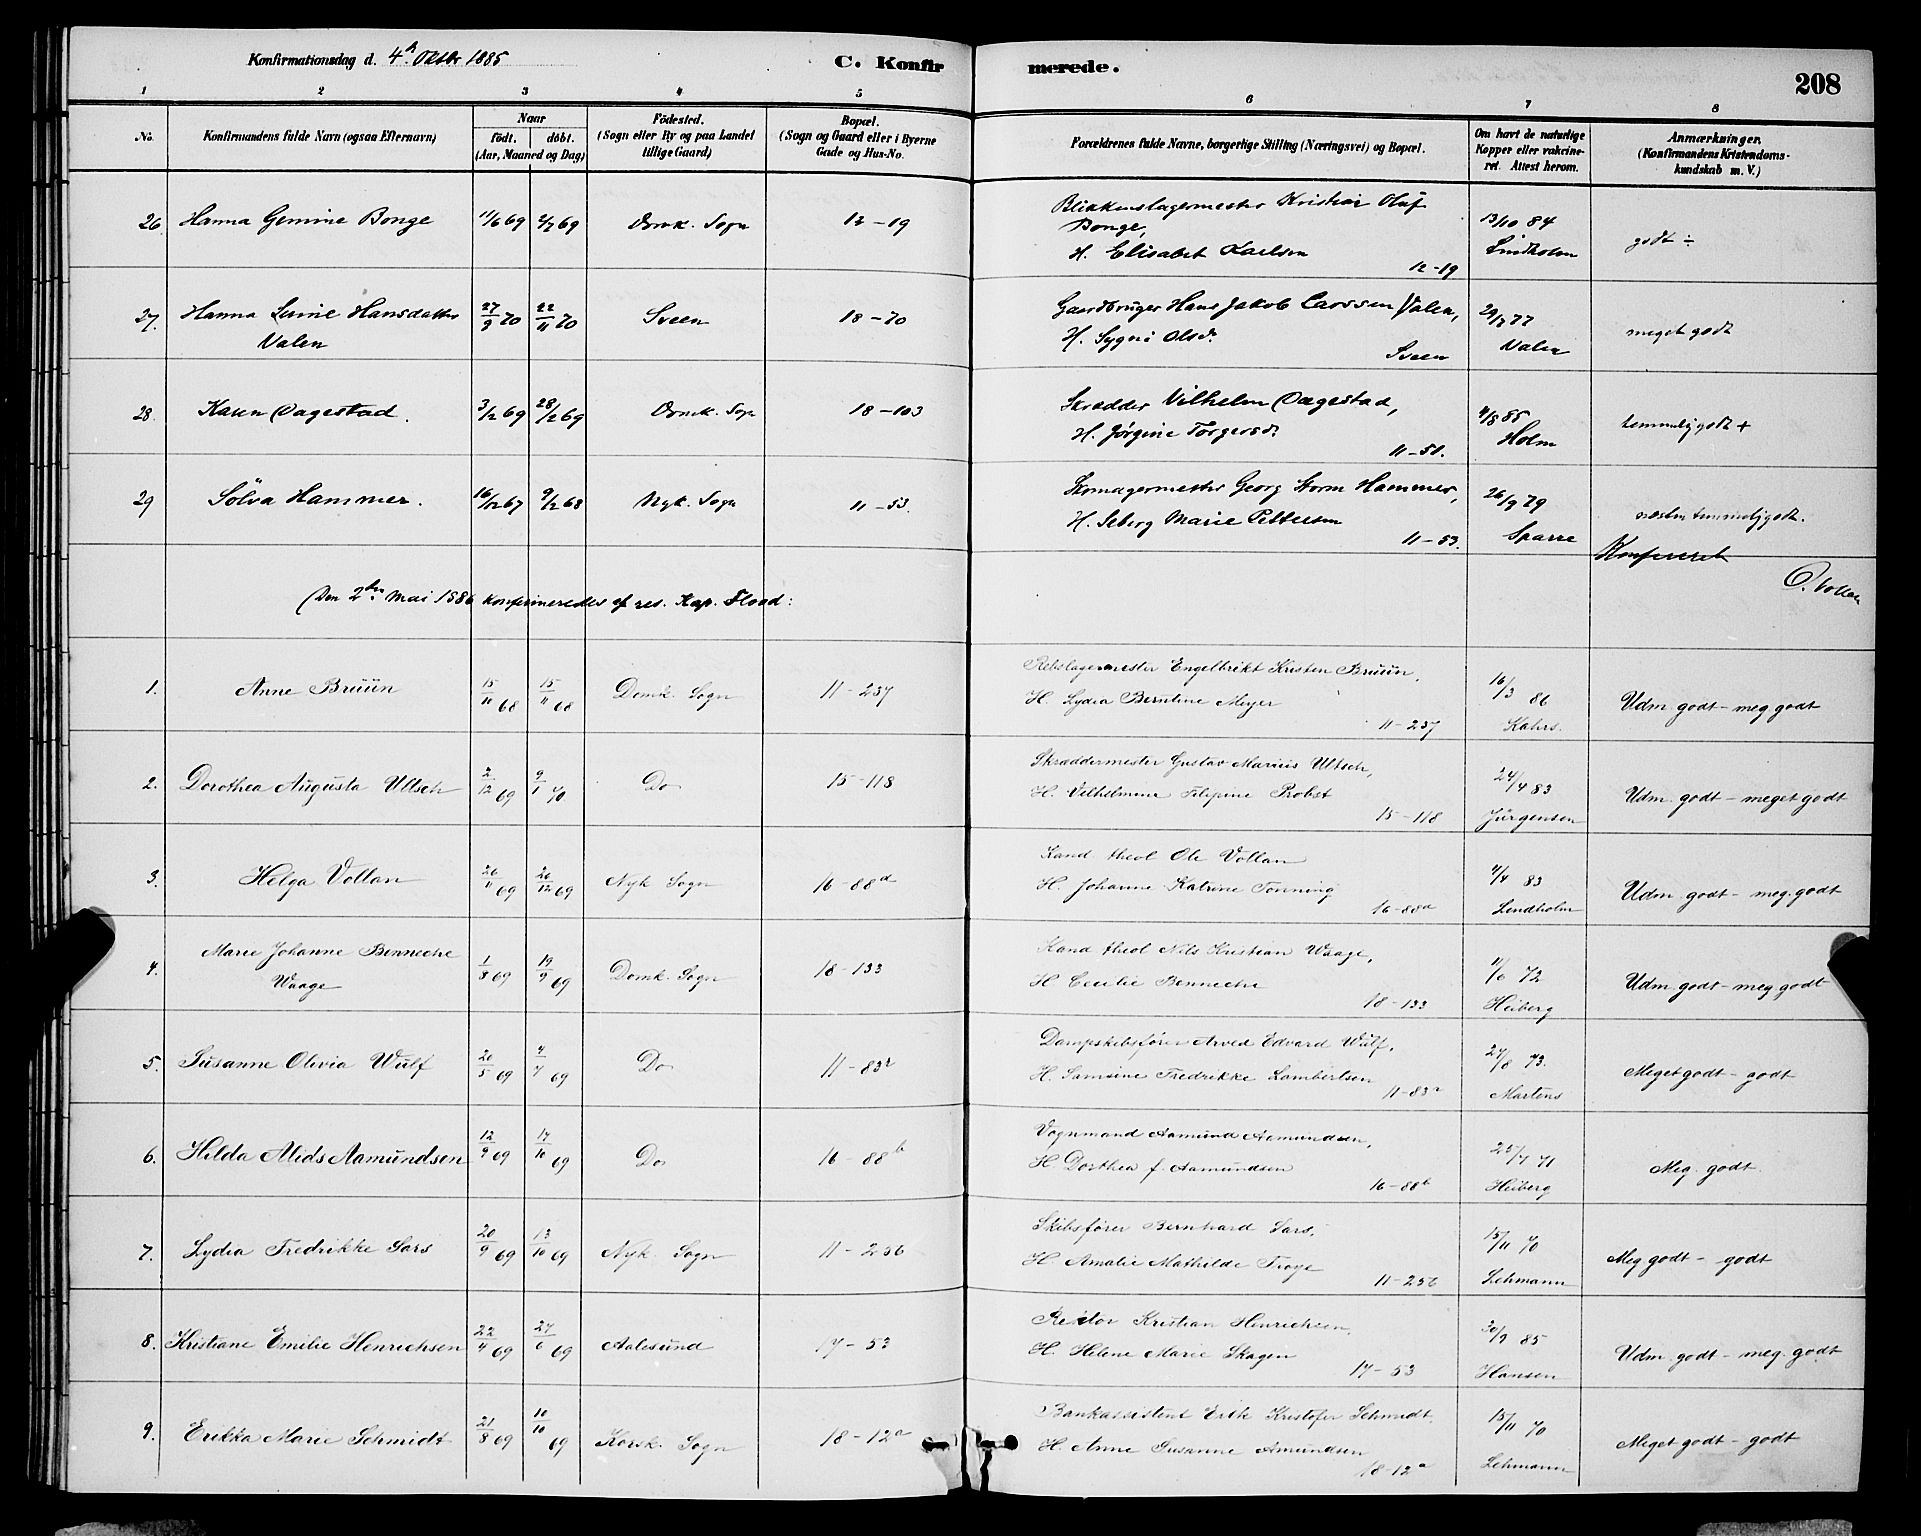 Konfirmationsdag d. 4de Oktbr 1885
C. Konfirmerede.
208
1 2 3 4 5 6 7 8
No. Konfirmandens fulde Navn (ogsaa Efternavn) Naar födt. döbt. (Aar, Maaned og Dag) Födested. (Sogn eller By og paa Landet tillige Gaard) Bopæl. (Sogn og Gaard eller i Byerne Gade og Hus-No. Forældrenes fulde Navne, borgerlige Stilling (Næringsvei) og Bopæl. Om havt de naturlige Kopper eller vakcineret. Attest herom. Anmærkninger. (Konfirmandens Kristendomskundskab m. V.)
26. Hanna Gemine Bonge 11/6 69 2/7 69 Domk. Sogn 12-19 Blikkenslagermester Kristian Oluf 13/10 84 godt ÷
Bonge,
H. Elisabet Karlsen 12-19 Lindholm
27. Hanna Hansdatter 27/9 70 22/11 70 Sveen 18-70 Gaardbruger Hans Jakob Larssen Valen, 29/7 77 meget godt
Valen H. Sygni Olsdr. Sveen Valen
28. Karen Dagestad. 3/2 69 28/2 69 Domk. Sogn 18-103 Skrædder Vilhelm Dagestad, 4/8 85 temmelig godt +
H. Jørgine Torgersdr. 11-51. Holm
29 Sölva Hammer. 16/12 67 9/2 68 Nyk. Sogn 11-53. Skomagermester Georg Storm Hammer, 26/9 79 næsten temmelig godt.
H. Seberg Marie Pettersen 11-53. Sparre
Konfereret
O. Vollan
Den 2den Mai 1886 konfirmeredes af res. Kap. Flood:
1. Anne Bruun 15/11 68 15/11 68 Domk. Sogn 11-237 Rebslagermester Engelbrikt Kristen Bruun. 16/3 86 Udm. godt - meg godt
H. Lydia Berntine Meyer 11-237 Kahrs.
2. Dorothea Augusta Ultsch 2/12 69 9/1 70 Do 15-118 Skræddermester Gustav Marius Ultsch, 24/4 83 Udm. godt - meget godt
H. Vilhelmine Filipine Probst 15-118 Jürgensen
3. Helga Vollan 26/11 69 26/12 69 Nyk Sogn 16-88a Kand. theol Ole Vollan 4/4 83 Udm godt - meg. godt
H. Johanne Katrine Tonning 16-88a Lindholm
4. Marie Johanne Bennecke 1/8 69 19/9 69 Domk. Sogn 18-133 Kand theol Nils Kristian Waage, 11/6 72 Udm godt - meg godt
Waage H Cecilie Bennecke 18-133 Heiberg
5. Susanne Olivia Wulf 20/5 69 4/7 69 Do 11-83 Dampskibsfører Arved Edvard Wulf. 27/8 73. Meget godt - godt
H. Samsine Fredrikke Lambertsen 11-83 Martens
6. Hilda Alids Aamundsen 12/9 69 17/10 69 Do 16-88b Vognmand Aamund Aamundsen, 25/7 71 Meg. godt
H. Dorthea f. Aamundsen 16-88b Heiberg
7. Lydia Fredrikke Sars 20/9 69 13/10 69 Nyk. Sogn 11-256 Skibsfører Bernhard Sars. 15/11 70 Meg godt - godt
H. Amalie Mathilde Troye 11-256 Lehmann
8. Kristiane Emilie Henrichsen 22/4 69 27/6 69 Aalesund 17-53 Rektor Kristian Henrichsen. 30/9 85 Udm. godt - meg. godt
H. Helene Marie Skagen 17-53 Hansen
9. Erikka Marie Schmidt 21/8 69 10/10 69 Korsk. Sogn 18-12a Bankassistent Erik Kristofer Schmidt. 15/11 70 Meget godt - godt
H. Anne Susanne Amundsen 18-12a Lehmann